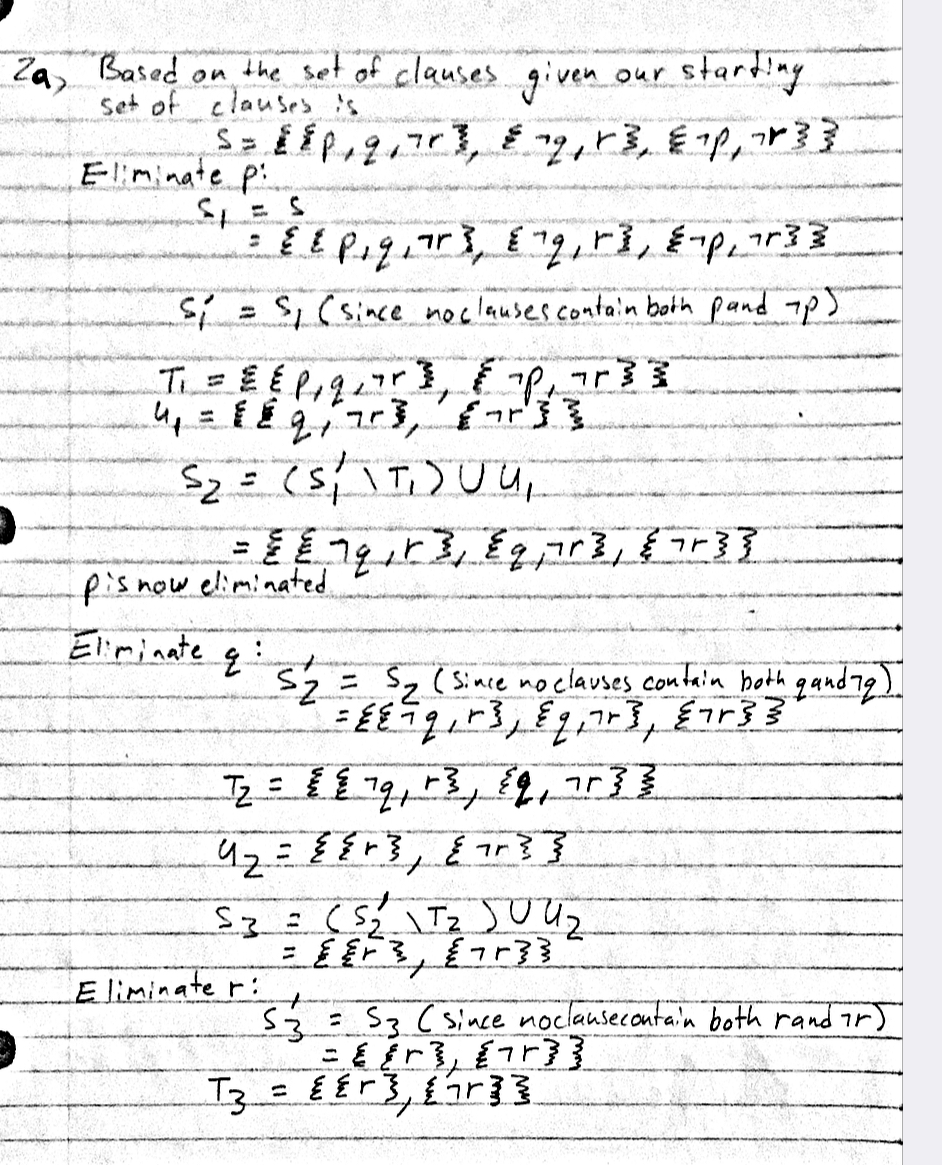 2a) Based on the set of clauses given our starting
set of clauses is
S = {{p, q, ¬r}, {¬q, r}, {¬p, ¬r}}
Eliminate p:
S₁ = S
= {{p, q, ¬r}, {¬q, r}, {¬p, ¬r}}
S₁' = S₁ (since no clauses contain both p and ¬p)
T₁ = {{p, q, ¬r}, {¬p, ¬r}}
U₁ = {{q, ¬r}, {¬r}}
S₂ = (S₁' \ T₁) ∪ U₁
= {{¬q, r}, {q, ¬r}, {¬r}}
p is now eliminated
Eliminate q:
S₂' = S₂ (since no clauses contain both q and ¬q)
= {{¬q, r}, {q, ¬r}, {¬r}}
T₂ = {{¬q, r}, {q, ¬r}}
U₂ = {{r}, {¬r}}
S₃ = (S₂' \ T₂) ∪ U₂
= {{r}, {¬r}}
Eliminate r:
S₃' = S₃ (since no clause contain both r and ¬r)
= {{r}, {¬r}}
T₃ = {{r}, {¬r}}